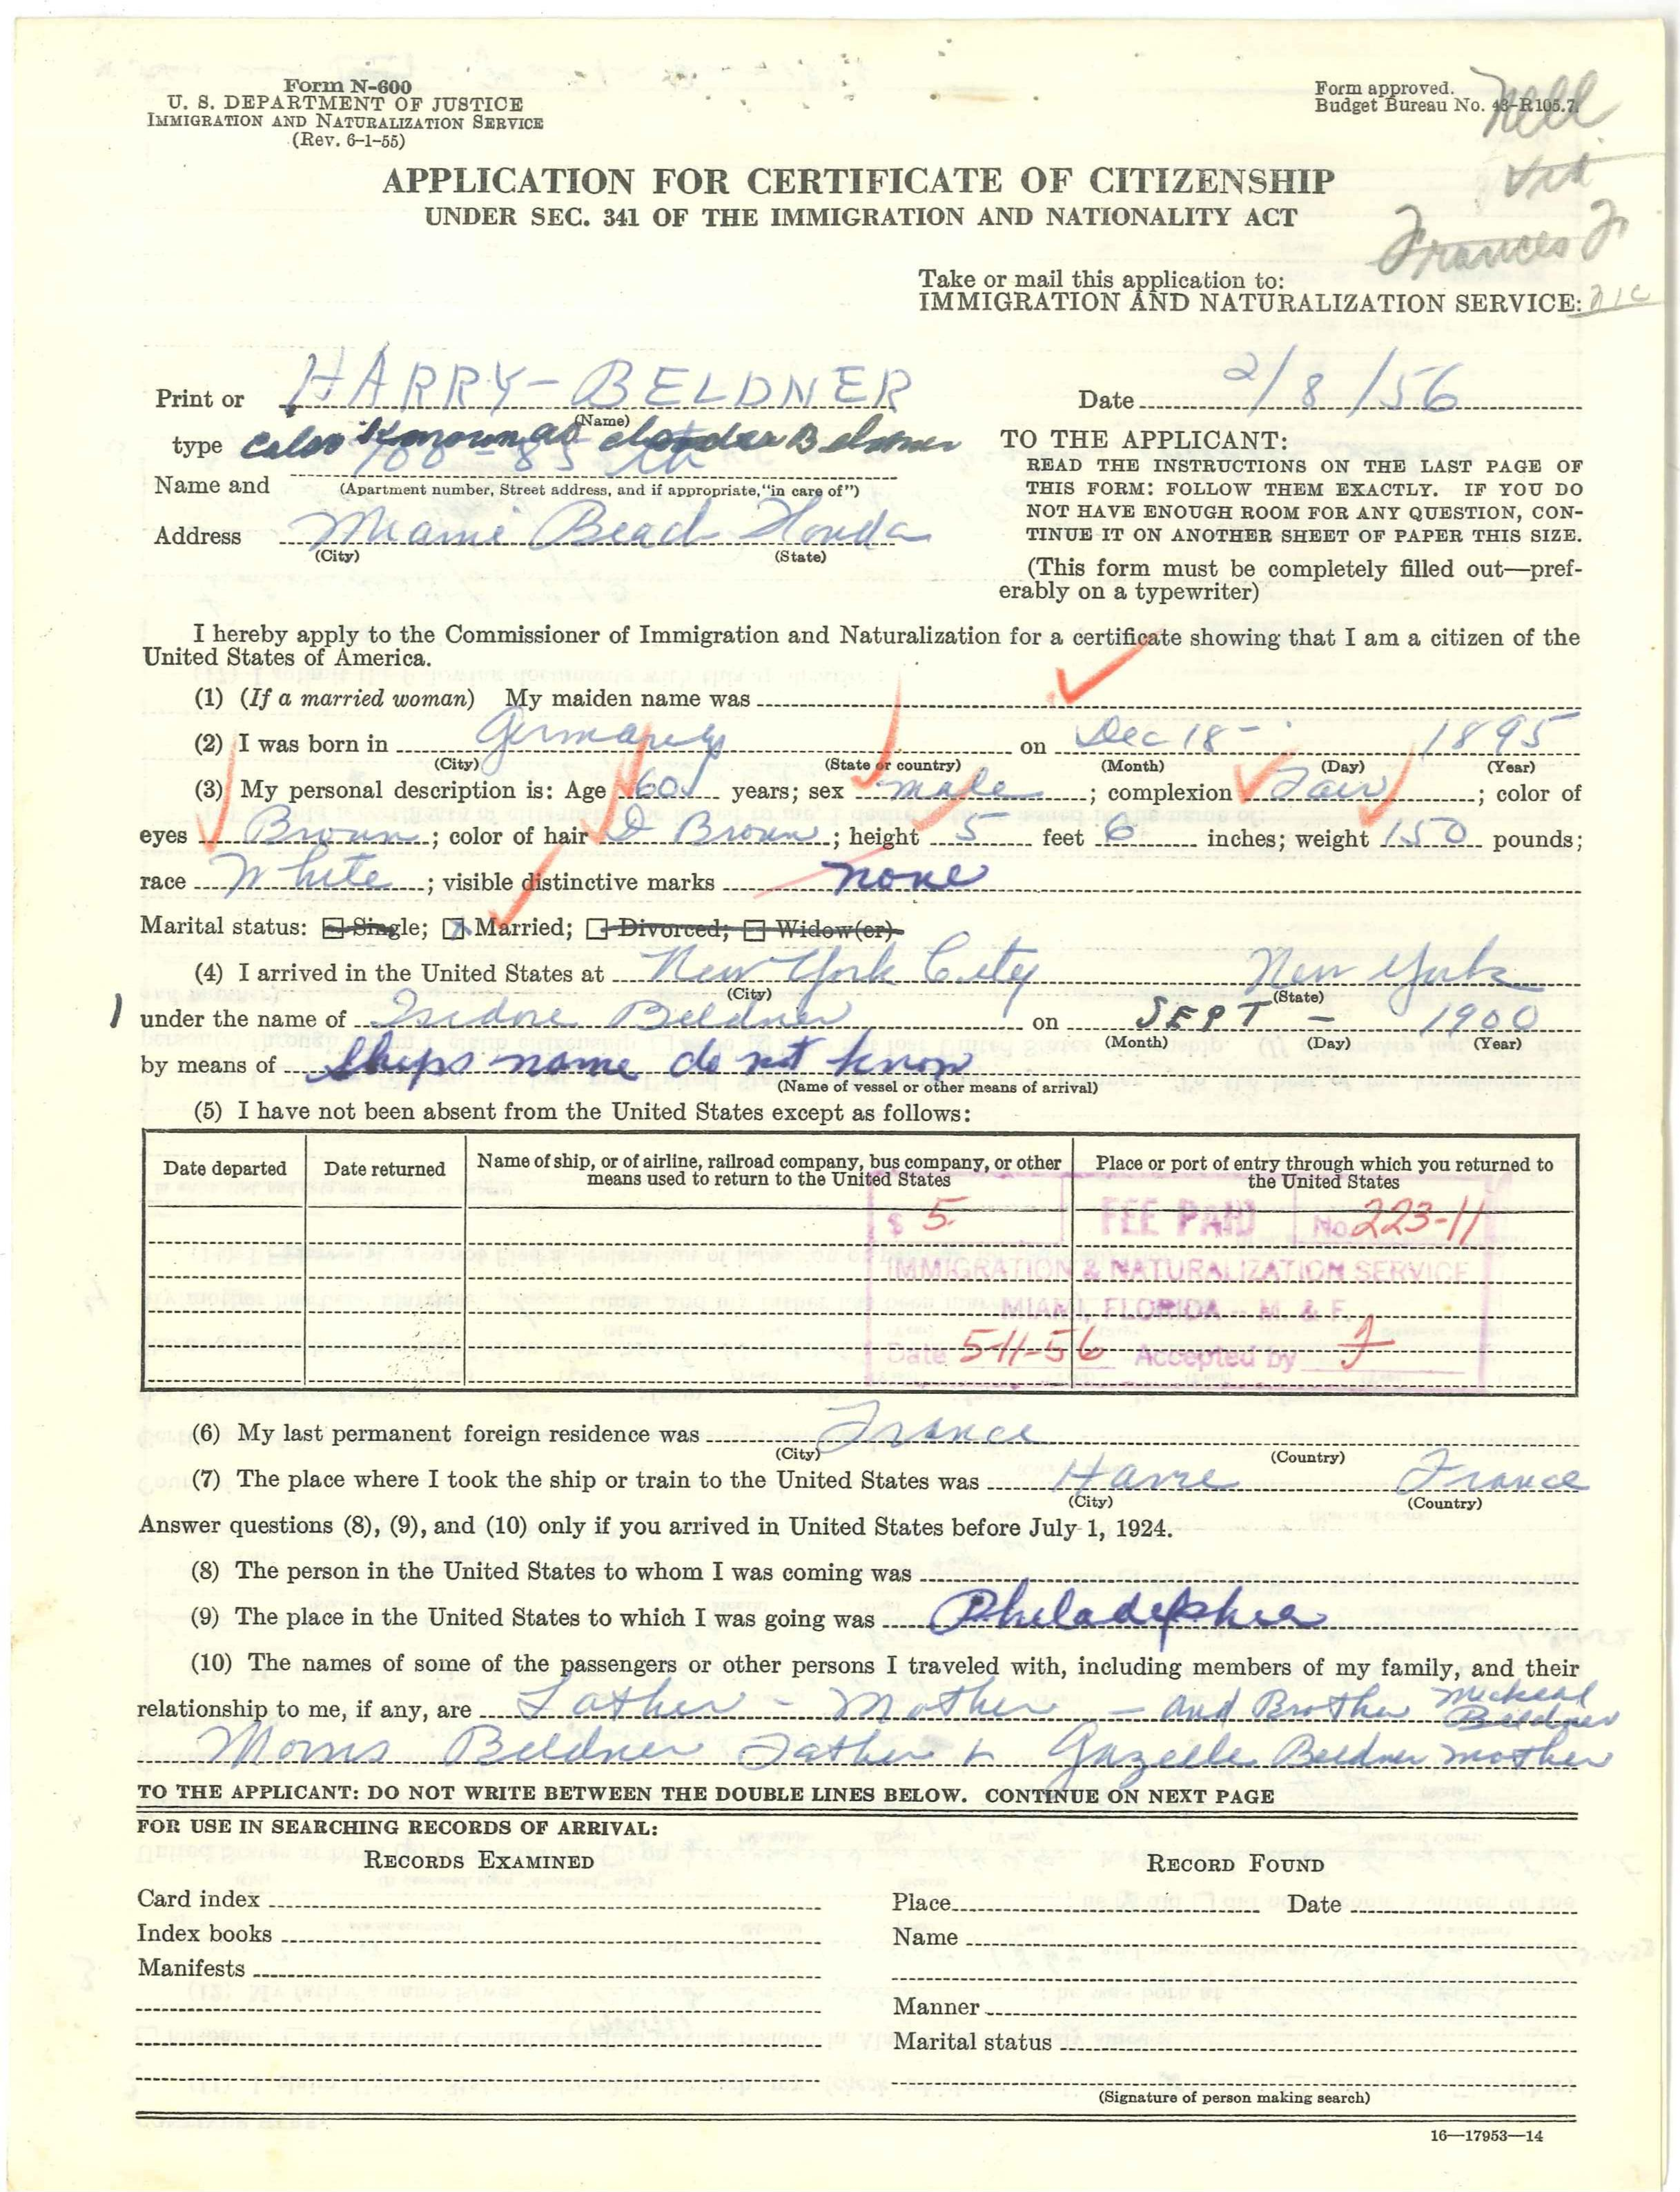 Form N-600
U. S. DEPARTMENT OF JUSTICE
IMMIGRATION AND NATURALIZATION SERVICE
(Rev. 6-1-55)
Form approved.
Budget Bureau No. 43-R105.7
Nell
APPLICATION FOR CERTIFICATE OF CITIZENSHIP
UNDER SEC. 341 OF THE IMMIGRATION AND NATIONALITY ACT
Frances
Take or mail this application to:
IMMIGRATION AND NATURALIZATION SERVICE:
Print or HARRY-BELDNER
(Name)
type also known as Beldner
Name and 700 - 85
(Apartment number, Street address, and if appropriate, "in care of")
Address Miami Beach Florida
(City) (State)
Date 2/8/56
TO THE APPLICANT:
READ THE INSTRUCTIONS ON THE LAST PAGE OF
THIS FORM: FOLLOW THEM EXACTLY. IF YOU DO
NOT HAVE ENOUGH ROOM FOR ANY QUESTION, CON-
TINUE IT ON ANOTHER SHEET OF PAPER THIS SIZE.
(This form must be completely filled out—pref-
erably on a typewriter)
I hereby apply to the Commissioner of Immigration and Naturalization for a certificate showing that I am a citizen of the
United States of America.
(1) (If a married woman) My maiden name was
(2) I was born in Germany on Dec 18 - 1895
(City) (State or country) (Month) (Day) (Year)
(3) My personal description is: Age 60 years; sex male; complexion Fair; color of
eyes Brown; color of hair D Brown; height 5 feet 6 inches; weight 150 pounds;
race White; visible distinctive marks none
Marital status: Single; X Married; Divorced; Widow(er)
(4) I arrived in the United States at New York City New York
(City) (State)
under the name of Isidore Beldner on SEPT - 1900
(Month) (Day) (Year)
by means of Ships name do not know
(Name of vessel or other means of arrival)
(5) I have not been absent from the United States except as follows:
Date departed Date returned Name of ship, or of airline, railroad company, bus company, or other Place or port of entry through which you returned to
means used to return to the United States the United States
$ 5- FEE PAID No. 223-11
IMMIGRATION & NATURALIZATION SERVICE
MIAMI, FLORIDA - M. & F.
Date 5-11-56 Accepted by J
(6) My last permanent foreign residence was France
(City) (Country)
(7) The place where I took the ship or train to the United States was Havre France
(City) (Country)
Answer questions (8), (9), and (10) only if you arrived in United States before July 1, 1924.
(8) The person in the United States to whom I was coming was
(9) The place in the United States to which I was going was Philadelphia
(10) The names of some of the passengers or other persons I traveled with, including members of my family, and their
relationship to me, if any, are Father - Mother - and Brother Micheal Beldner
Morris Beldner Father & Gazelle Beldner mother
TO THE APPLICANT: DO NOT WRITE BETWEEN THE DOUBLE LINES BELOW. CONTINUE ON NEXT PAGE
FOR USE IN SEARCHING RECORDS OF ARRIVAL:
RECORDS EXAMINED
RECORD FOUND
Card index
Place Date
Index books
Name
Manifests
Manner
Marital status
(Signature of person making search)
16—17953—14